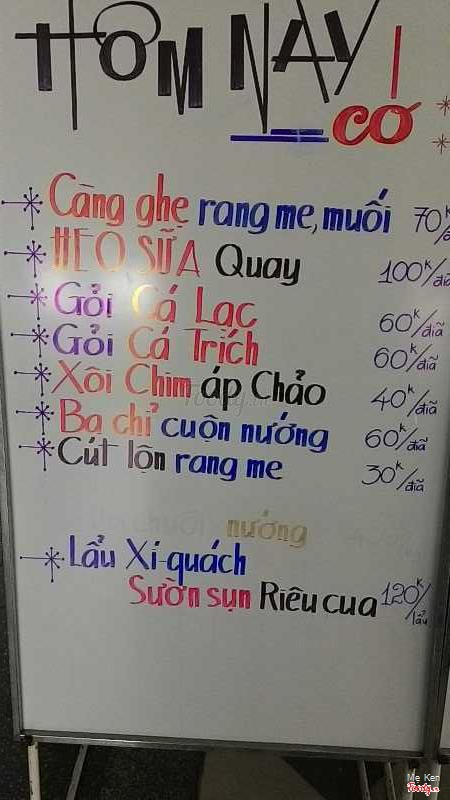 HÔM NAY
CÓ
Càng ghẹ rang me, muối 70k/đ
HEO SỮA Quay 100k/đĩa
Gỏi Cá Lạc 60k/đĩa
Gỏi Cá Trích 60k/đĩa
Xôi Chim áp Chảo 40k/đĩa
Ba chỉ cuộn nướng 60k/đĩa
Cút lộn rang me 30k/đĩa
chuối nướng
Lẩu Xí-quách
Sườn sụn Riêu cua 120k/lẩu
Me Ken
Foody.vn